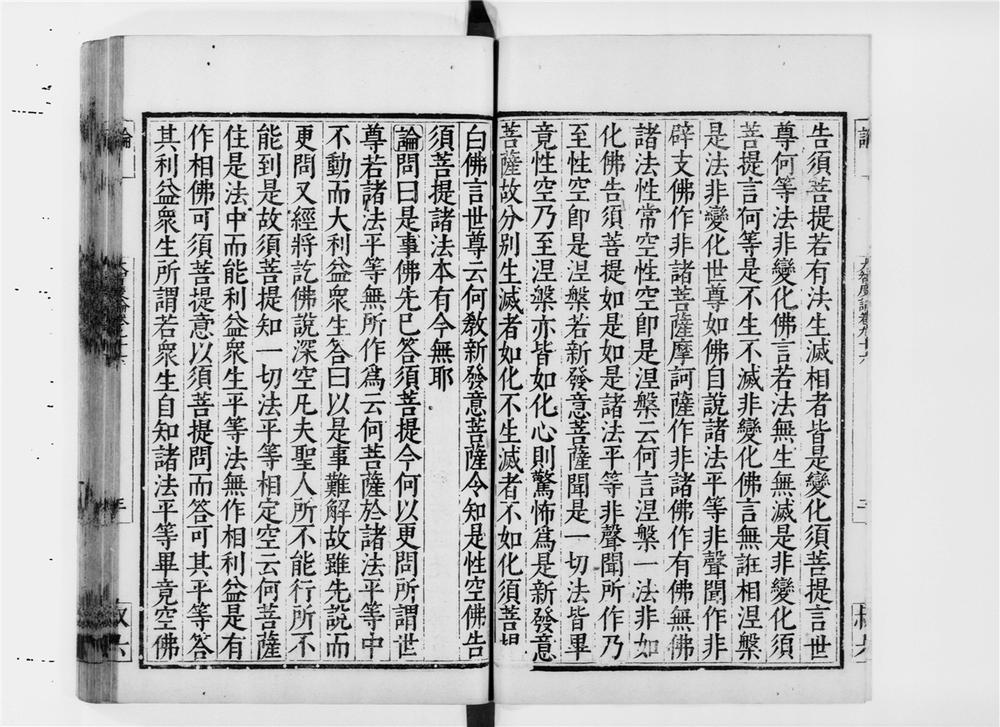 告須菩提若有法生滅相者皆是變化須菩提言世
尊何等法非變化佛言若法無生無滅是非變化須
菩提言何等是不生不滅非變化佛言無誑相涅槃
是法非變化世尊如佛自說諸法平等非聲聞作非
辟支佛作非諸菩薩摩訶薩作非諸佛作有佛無佛
諸法性常空性空即是涅槃云何言涅槃一法非如
化佛告須菩提如是如是諸法平等非聲聞所作乃
至性空即是涅槃若新發意菩薩聞是一切法皆畢
竟性空乃至涅槃亦皆如化心則驚怖爲是新發意
菩薩故分别生滅者如化不生滅者不如化須菩提
白佛言世尊云何敎新發意菩薩令知是性空佛告
須菩提諸法本有今無耶
論問曰是事佛先已答須菩提今何以更問所謂世
尊若諸法平等無所作爲云何菩薩於諸法平等中
不動而大利益衆生答曰以是事難解故雖先說而
更問又經將訖佛說深空凡夫聖人所不能行所不
能到是故須菩提知一切法平等相定空云何菩薩
住是法中而能利益衆生平等法無作相利益是有
作相佛可須菩提意以須菩提問而答可其平等答
其利益衆生所謂若衆生自知諸法平等畢竟空佛
論